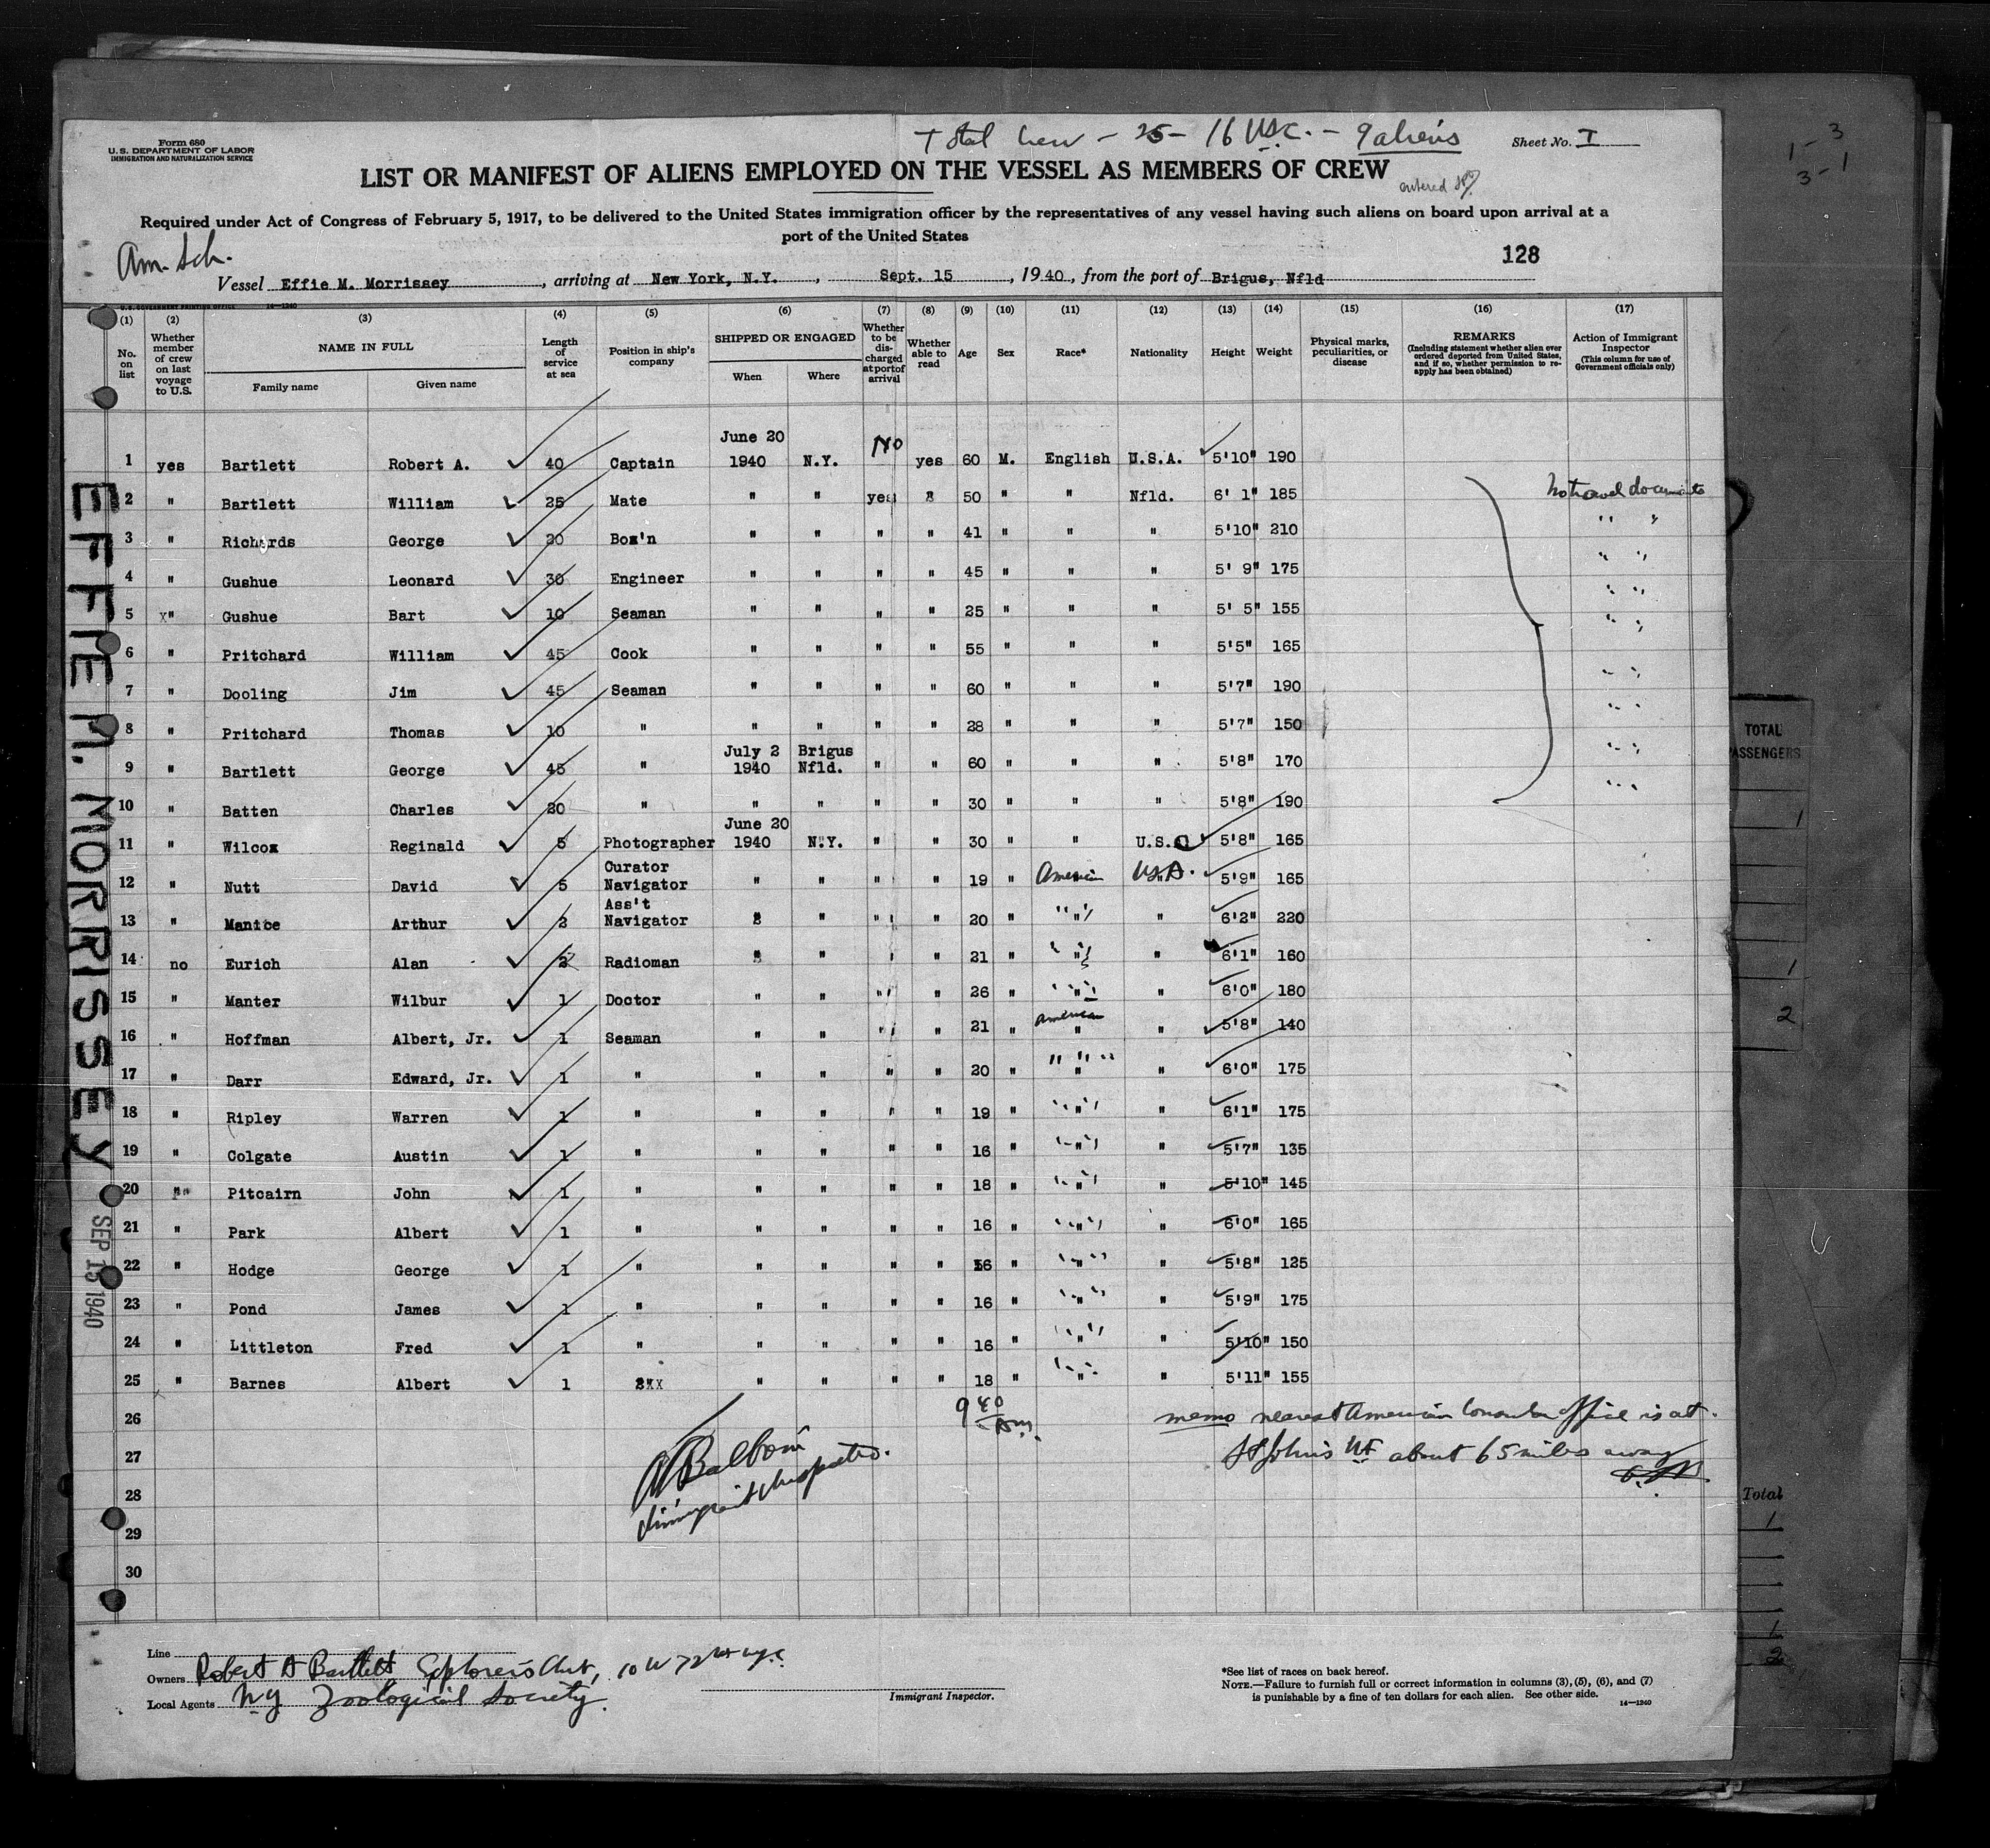 Total Crew - 25 - 16 USC. - 9 aliens
Form 680
U.S. DEPARTMENT OF LABOR
IMMIGRATION AND NATURALIZATION SERVICE
Sheet No. I
LIST OR MANIFEST OF ALIENS EMPLOYED ON THE VESSEL AS MEMBERS OF CREW
entered
Required under Act of Congress of February 5, 1917, to be delivered to the United States immigration officer by the representatives of any vessel having such aliens on board upon arrival at a
port of the United States
128
Am. Sch.
Vessel Effie M. Morrissey, arriving at New York, N.Y., Sept. 15, 1940, from the port of Brigus, Nfld
U.S. GOVERNMENT PRINTING OFFICE 14—1240
(1) (2) (3) (4) (5) (6) (7) (8) (9) (10) (11) (12) (13) (14) (15) (16) (17)
No. on list
Whether member of crew on last voyage to U.S.
NAME IN FULL
Family name Given name
Length of service at sea
Position in ship's company
SHIPPED OR ENGAGED
When Where
Whether to be discharged at port of arrival
Whether able to read
Age Sex Race* Nationality Height Weight
Physical marks, peculiarities, or disease
REMARKS
(Including statement whether alien ever ordered deported from United States, and if so, whether permission to reapply has been obtained)
Action of Immigrant Inspector
(This column for use of Government officials only)
1 yes Bartlett Robert A. 40 Captain June 20 1940 N.Y. No yes 60 M. English U.S.A. 5'10" 190
2 " Bartlett William 25 Mate " " yes " 50 " " Nfld. 6' 1" 185 No travel documents
3 " Richards George 20 Bos'n " " " " 41 " " " 5'10" 210 " "
4 " Gushue Leonard 30 Engineer " " " " 45 " " " 5' 9" 175 " "
5 x" Gushue Bart 10 Seaman " " " " 25 " " " 5' 5" 155 " "
6 " Pritchard William 45 Cook " " " " 55 " " " 5'5" 165 " "
7 " Dooling Jim 45 Seaman " " " " 60 " " " 5'7" 190 " "
8 " Pritchard Thomas 10 " " " " " 28 " " " 5'7" 150 " "
9 " Bartlett George 45 " July 2 1940 Brigus Nfld. " " 60 " " " 5'8" 170 " "
10 " Batten Charles 20 " " " " " 30 " " " 5'8" 190 " "
11 " Wilcox Reginald 5 Photographer June 20 1940 N.Y. " " 30 " " U.S. 5'8" 165
12 " Nutt David 5 Curator Navigator " " " " 19 " American USA. 5'9" 165
13 " Manice Arthur 2 Ass't Navigator " " " " 20 " " " 6'2" 220
14 no Eurich Alan 2 Radioman " " " " 21 " " " 6'1" 160
15 " Manter Wilbur 1 Doctor " " " " 26 " " " 6'0" 180
16 " Hoffman Albert, Jr. 1 Seaman " " " " 21 " American " 5'8" 140
17 " Darr Edward, Jr. 1 " " " " " 20 " " " 6'0" 175
18 " Ripley Warren 1 " " " " " 19 " " " 6'1" 175
19 " Colgate Austin 1 " " " " " 16 " " " 5'7" 135
20 " Pitcairn John 1 " " " " " 18 " " " 5'10" 145
21 " Park Albert 1 " " " " " 16 " " " 6'0" 165
22 " Hodge George 1 " " " " " 16 " " " 5'8" 125
23 " Pond James 1 " " " " " 16 " " " 5'9" 175
24 " Littleton Fred 1 " " " " " 16 " " " 5'10" 150
25 " Barnes Albert 1 " " " " 18 " " " 5'11" 155
26
27
28
29
30
9 40 Am.
memo nearest American Consular office is at
St Johns NF about 65 miles away
A Balboni
Immigrant Inspector.
EFFIE M. MORRISSEY
SEP 15 1940
Line
Owners Robert A Bartlett Explorers Club, 10 W 72 st nyc
Local Agents NY Zoological Society.
Immigrant Inspector.
*See list of races on back hereof.
NOTE.—Failure to furnish full or correct information in columns (3), (5), (6), and (7)
is punishable by a fine of ten dollars for each alien. See other side. 14—1240
1 - 3
3 - 1
TOTAL
PASSENGERS
1
1
2
Total
1
1
2